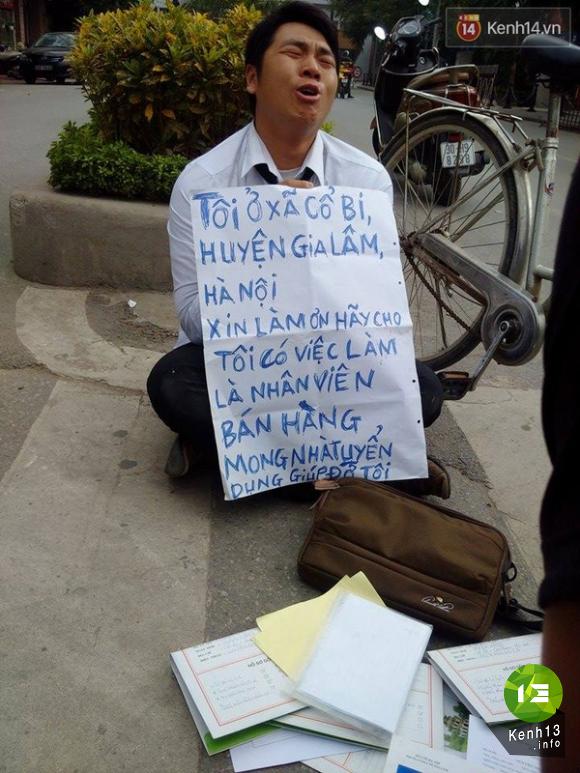 14 Kenh14.vn
TÔI Ở XÃ CỔ BI,
HUYỆN GIA LÂM,
HÀ NỘI
XIN LÀM ƠN HÃY CHO
TÔI CÓ VIỆC LÀM
LÀ NHÂN VIÊN
BÁN HÀNG
MONG NHÀ TUYỂN
DỤNG GIÚP ĐỠ TÔI
Kenh13
.info